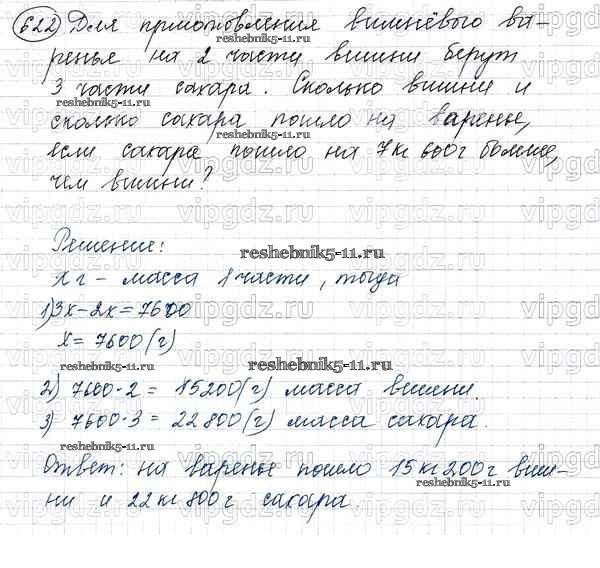 622) Для приготовления вишнёвого ва-
ренья на 2 части вишни берут
3 части сахара. Сколько вишни и
сколько сахара пошло на варенье,
если сахара пошло на 7кг 600г больше,
чем вишни?
Решение:
x г - масса 1 части, тогда
1) 3x-2x=7600
x=7600(г)
2) 7600·2 = 15200(г) масса вишни.
3) 7600·3 = 22800(г) масса сахара.
Ответ: на варенье пошло 15кг 200г виш-
ни и 22кг 800г сахара.
reshebnik5-11.ru
vipgdz.ru